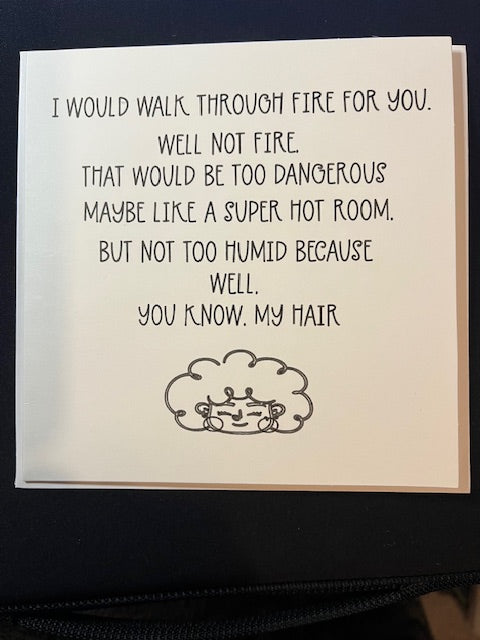 I WOULD WALK THROUGH FIRE FOR YOU.
WELL NOT FIRE.
THAT WOULD BE TOO DANGEROUS
MAYBE LIKE A SUPER HOT ROOM.
BUT NOT TOO HUMID BECAUSE
WELL.
YOU KNOW. MY HAIR